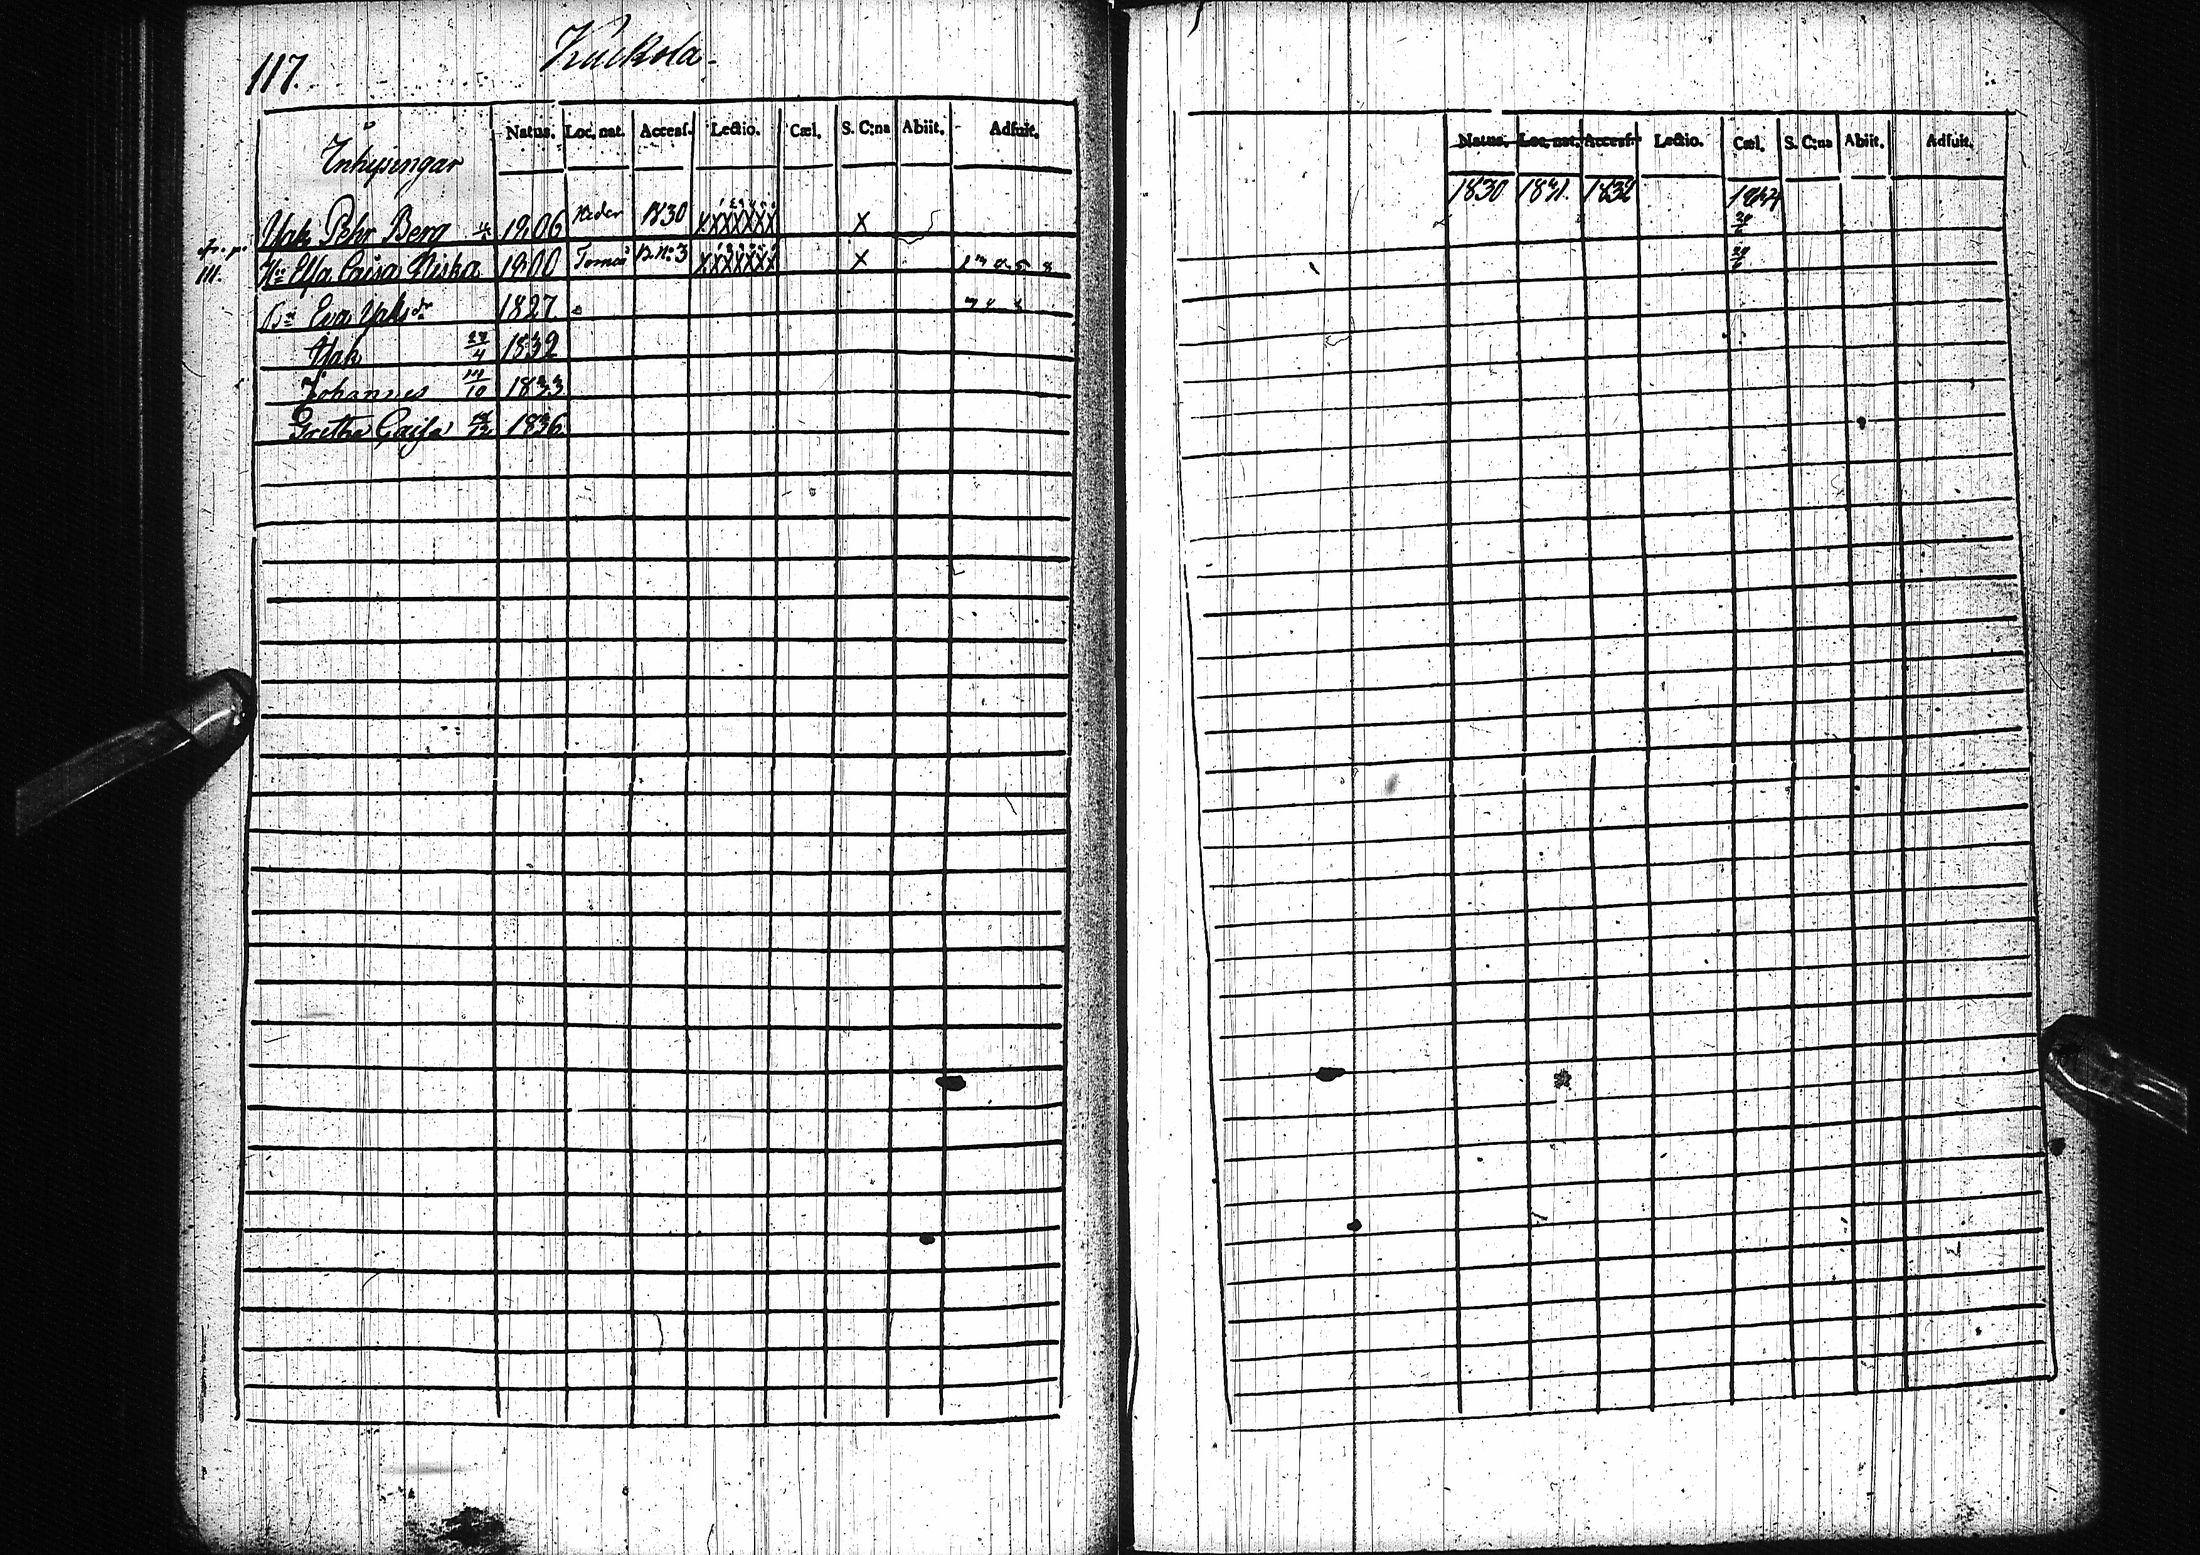 117. Kuckola.
Inhysingar Natus. Loc. nat. Accesſ. Lectio. Cæl. S. C:na Abiit. Adfuit.
Jak Pehr Berg 1806 Neder 1830 X X X X X X X
Hu Elsa Caisa Niska 1800 Torneå B. No 3 X X X X X X X
111.
Eva Jaks dr 1827
Jak 27/4 1832
Johannes 1833
Gretha Caisa 1836
Natus. Loc. nat. Accesſ. Lectio. Cæl. S. C:na Abiit. Adfuit.
1830 1831. 1832 1834